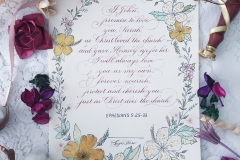 I, John,
promise to love
you, Sarah,
as Christ loved the church
and gave Himself up for her.
I will always love
you as my own,
forever nourish,
protect and cherish you,
just as Christ does the church.
EPHESIANS 5:25-33